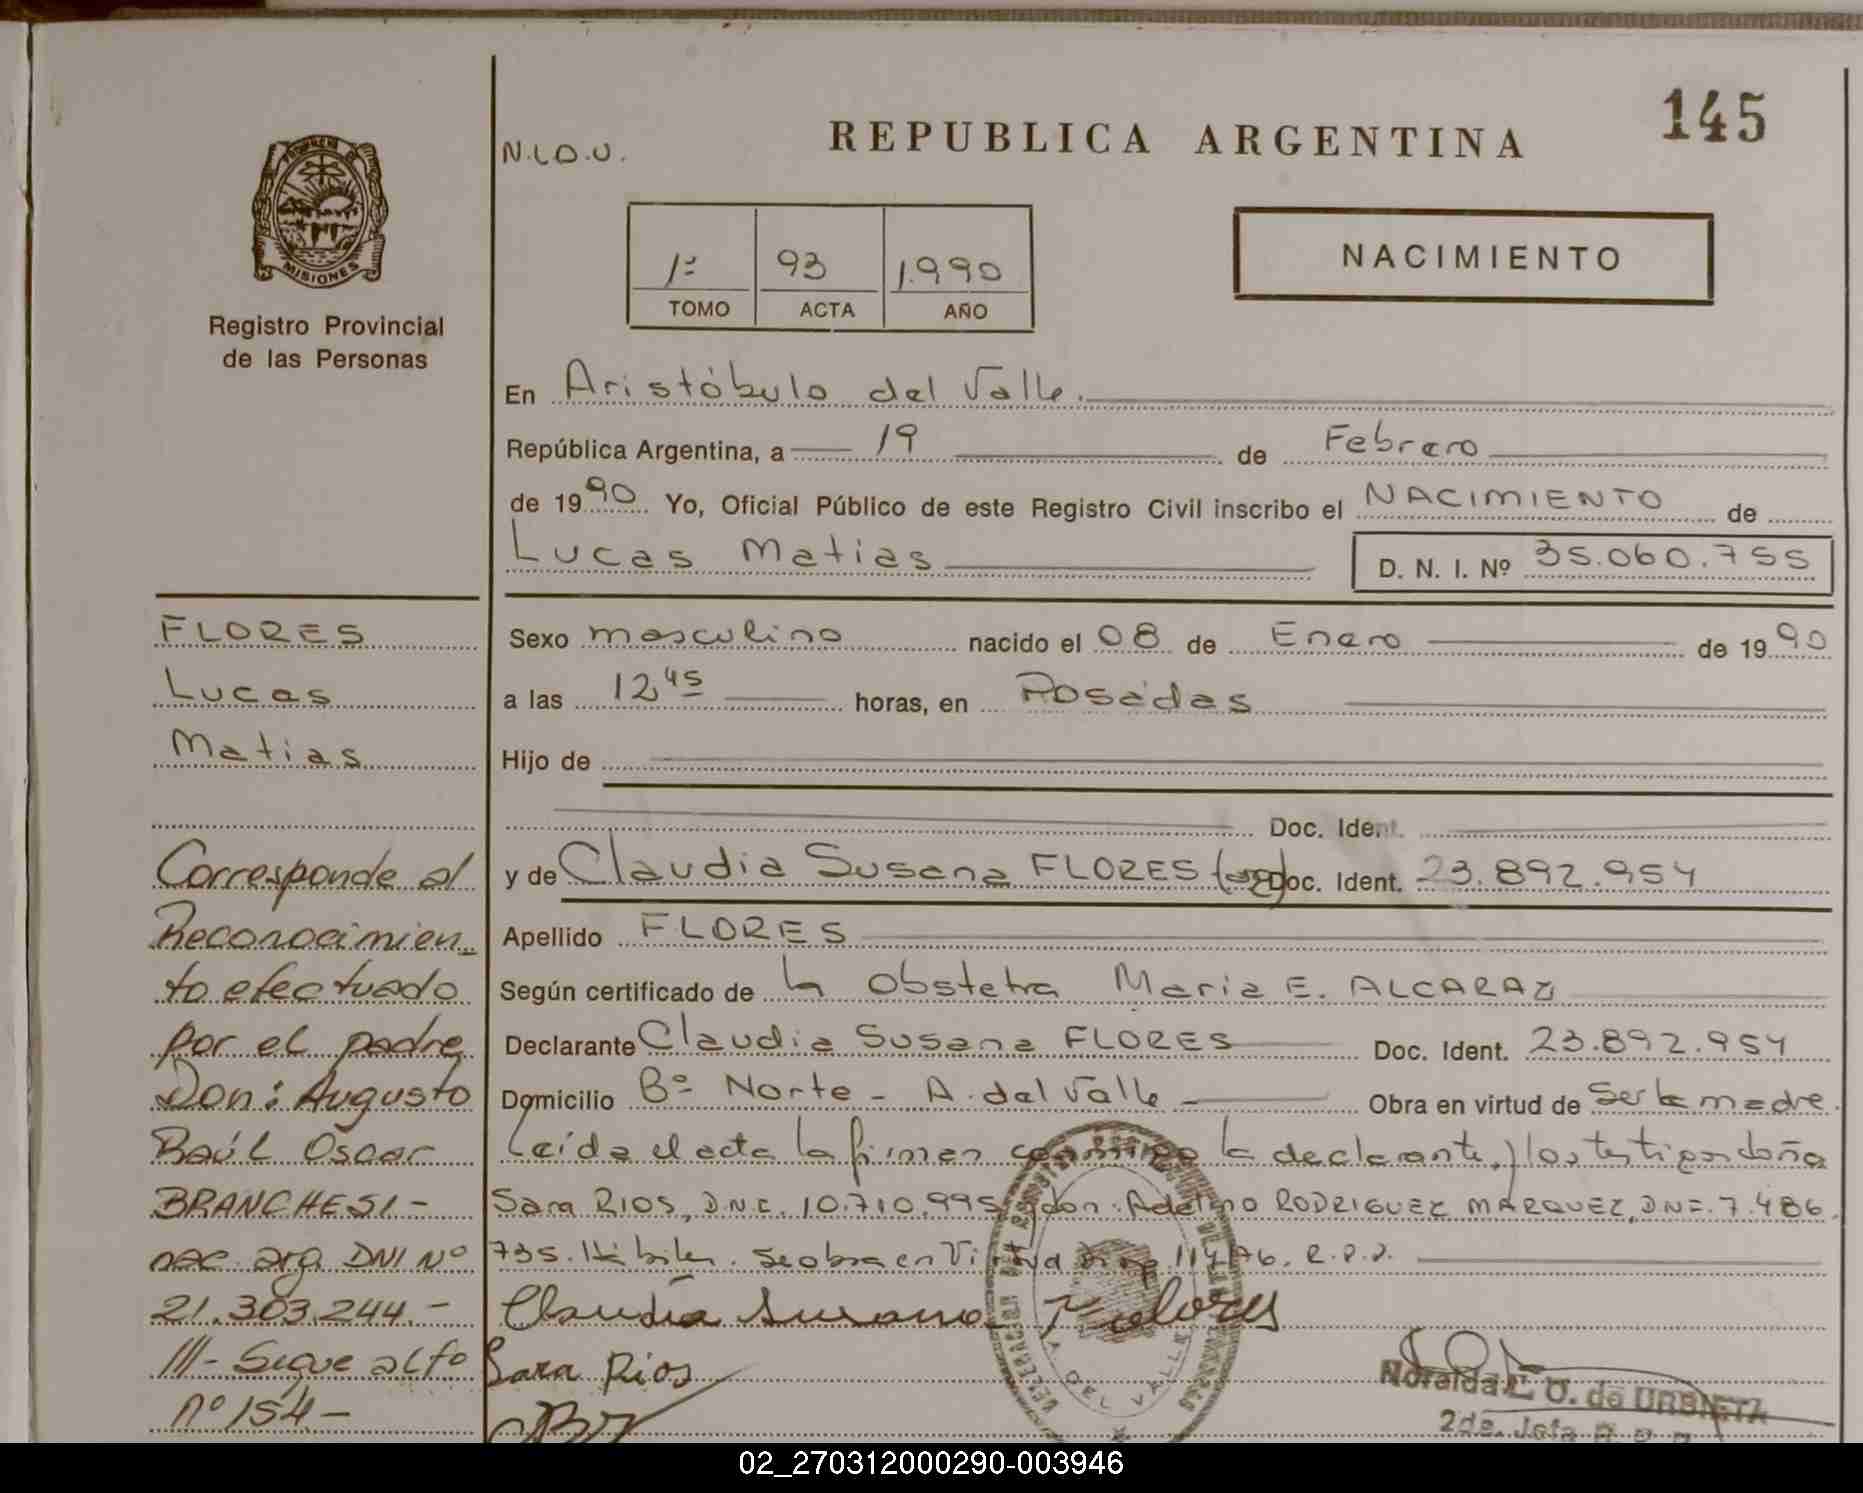 145
REPUBLICA ARGENTINA
N.I.O.U.
PROVINCIA DE
MISIONES
Registro Provincial
de las Personas
1º 93 1.990
TOMO ACTA AÑO
NACIMIENTO
En Aristóbulo del Valle.
República Argentina, a 19 de Febrero
de 1990 Yo, Oficial Público de este Registro Civil inscribo el NACIMIENTO de
Lucas Matias D. N. I. Nº 35.060.755
Sexo masculino nacido el 08 de Enero de 1990
a las 12 45 horas, en Posadas
Hijo de
Doc. Ident.
y de Claudia Susana FLORES Doc. Ident. 23.892.954
Apellido FLORES
Según certificado de la obstetra Maria E. ALCARAZ
Declarante Claudia Susana FLORES Doc. Ident. 23.892.954
Domicilio Bº Norte - A. del Valle - Obra en virtud de ser la madre.
Leída el acta la firman conmigo la declarante, y los testigos doña
Sara RIOS, D.N.I. 10.710.995 y don: Adelino RODRIGUEZ MARQUEZ, DNI. 7.486.
735. Hábiles. Se obra en 114/76. R.P.P.
Claudia Susana Flores
Sara Rios
DEL VALLE
Noralda E. O. de URBIETA
2da. Jefa R. P. P.
FLORES
Lucas
Matias
Corresponde al
Reconocimien
to efectuado
por el padre
Don: Augusto
Raúl Oscar
BRANCHESI -
nac. arg. DNI Nº
21.303.244.-
///- Sigue al fo
nº 154 -
02_270312000290-003946